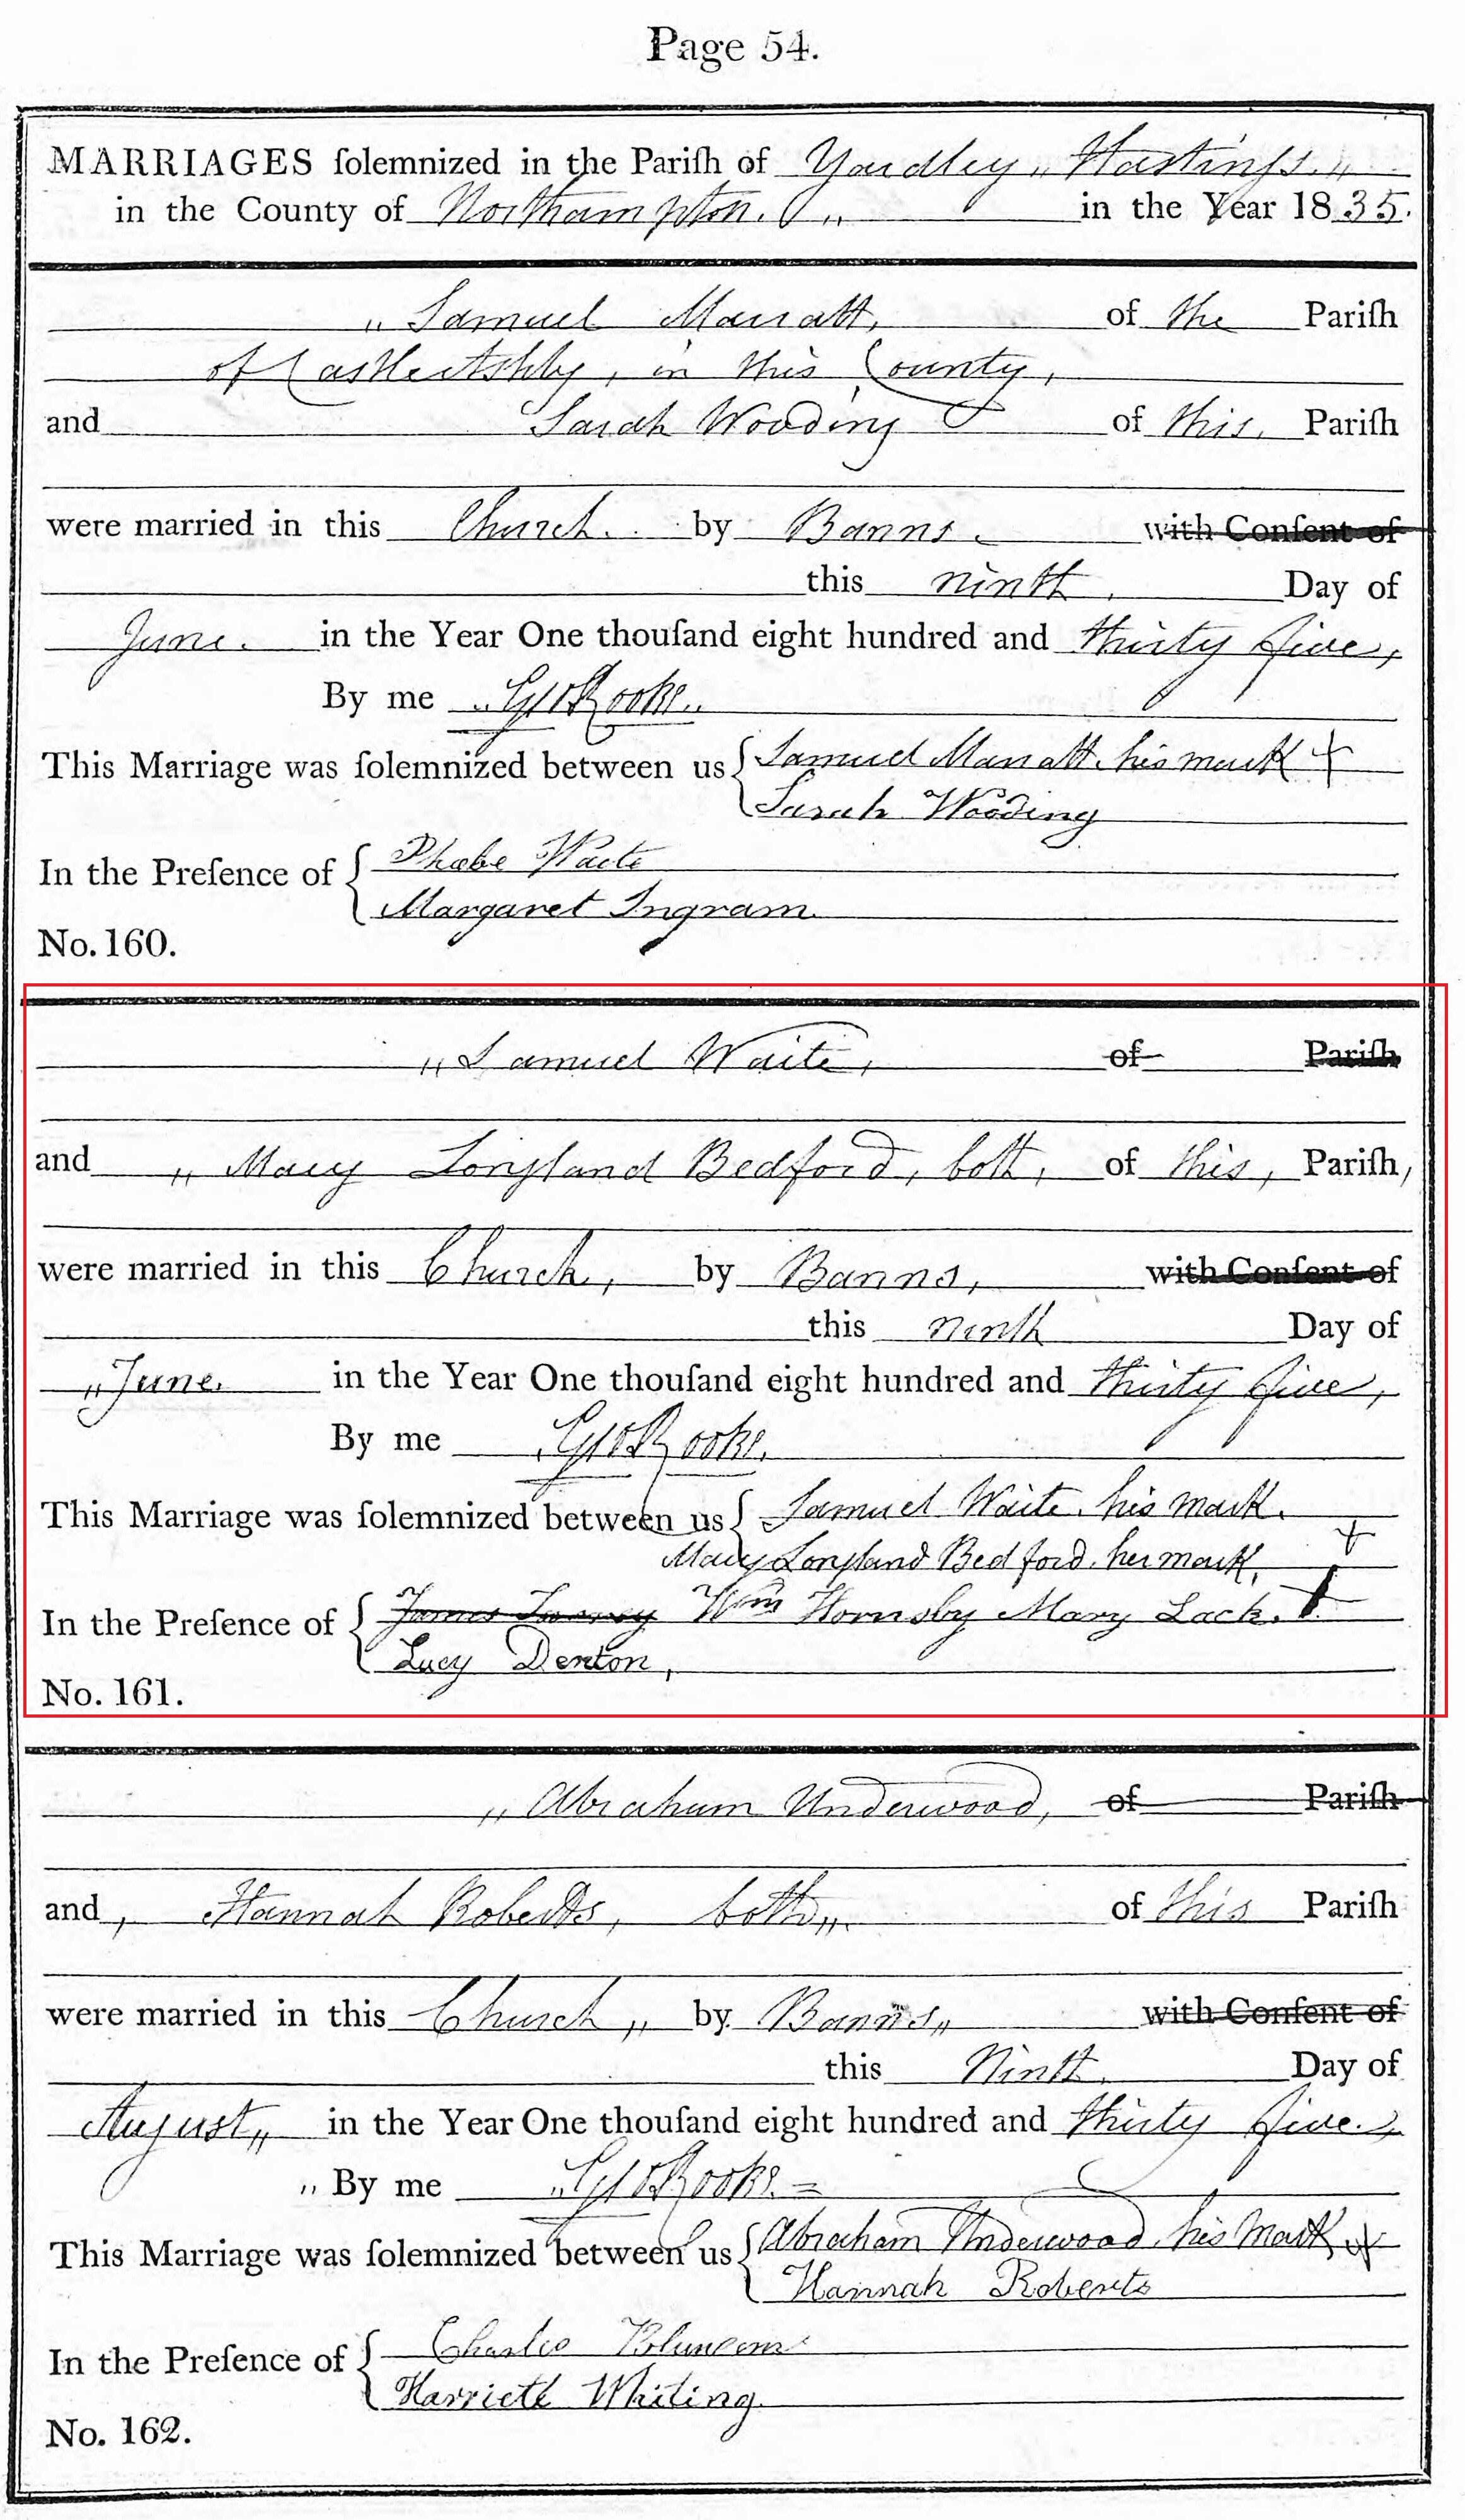 Page 54.
MARRIAGES ſolemnized in the Pariſh of Yardley „ Hastings. „
in the County of Northampton. „ in the Year 1835.
„ Samuel Marratt, of the Pariſh
of Castle Ashby, in this County,
and Sarah Wooding of this. Pariſh
were married in this Church. by Banns. with Conſent of
this ninth, Day of
June. in the Year One thouſand eight hundred and thirty five,
By me Rooke.
This Marriage was ſolemnized between us { Samuel Marratt. his mark +
Sarah Wooding
In the Preſence of { Phœbe Waite
Margaret Ingram.
No. 160.
„ Samuel Waite, of Pariſh
and „ Mary Longland Bedford, both, of this, Pariſh,
were married in this Church, by Banns, with Conſent of
this ninth Day of
„ June. in the Year One thouſand eight hundred and thirty five,
By me Rooke.
This Marriage was ſolemnized between us { Samuel Waite. his mark.
Mary Longland Bedford. her mark. +
In the Preſence of { James Wm Hornsby Mary Lack. +
Lucy Denton,
No. 161.
„ Abraham Underwood, of Pariſh
and, Hannah Roberts, both „ of this Pariſh
were married in this Church „ by Banns „ with Conſent of
this Ninth. Day of
August „ in the Year One thouſand eight hundred and thirty five.
„ By me Rooke. =
This Marriage was ſolemnized between us { Abraham Underwood. his Mark +
Hannah Roberts
In the Preſence of { Charles
Harriett Whiting.
No. 162.